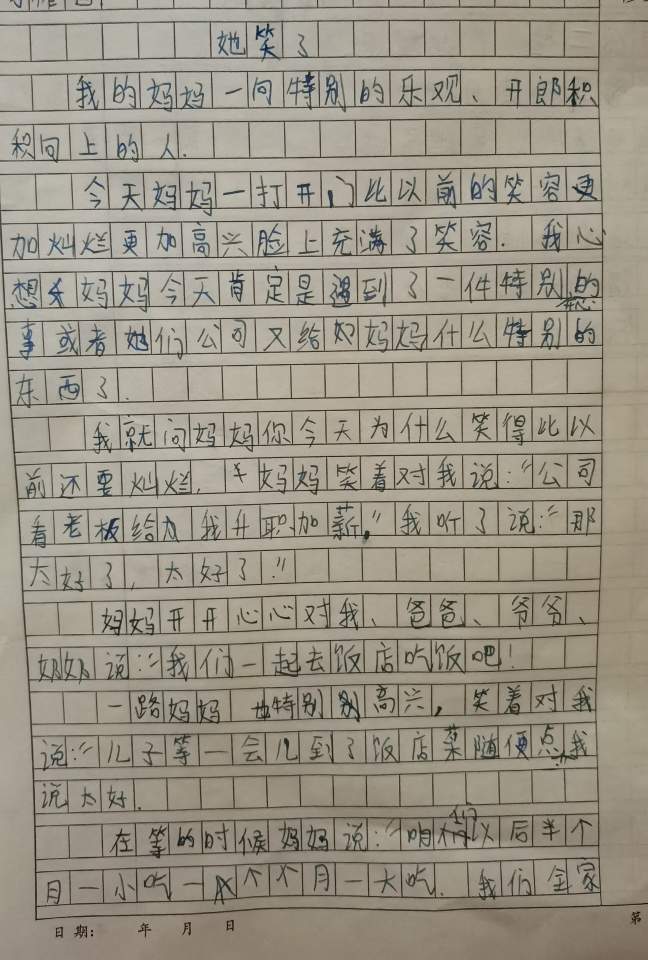 她笑了
我的妈妈一向特别的乐观、开郎积
积向上的人.
今天妈妈一打开门比以前的笑容更
加灿烂更加高兴脸上充满了笑容.我心
想妈妈今天肯定是遇到了一件特别的
事或者她们公司又给妈妈什么特别的
东西了.
我就问妈妈你今天为什么笑得比以
前还要灿烂,妈妈笑着对我说:“公司
看老板给我升职加薪,”我听了说:“那
太好了,太好了!”
妈妈开开心心对我、爸爸、爷爷、
奶奶说:“我们一起去饭店吃饭吧!
一路妈妈也特别别高兴,笑着对我
说:“儿子等一会儿到了饭店菜随便点我
说太好.
在等的时候妈妈说:“咱们以后半个
月一小吃一个月一大吃.我们全家
日期: 年 月 日
第